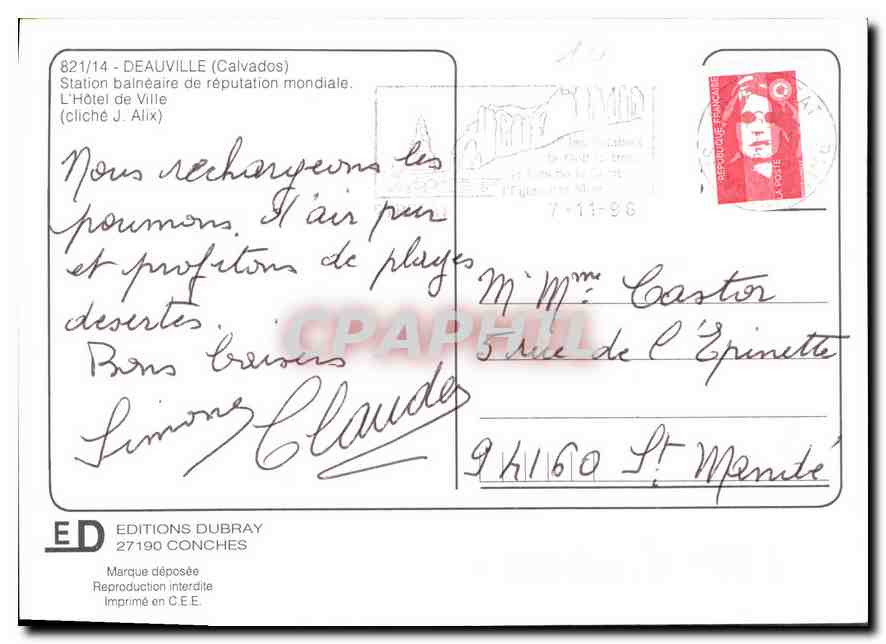 821/14 - DEAUVILLE (Calvados)
Station balnéaire de réputation mondiale.
L'Hôtel de Ville
(cliché J. Alix)
Nous rechargeons les
poumons. d'air pur
et profitons de plages
desertes.
Bons baisers
Simone Claude
7-11-96
RÉPUBLIQUE FRANÇAISE
LA POSTE
Mr Mme Castor
5 rue de l'Epinette
94160 St Mandé
CPAPHIL
ED EDITIONS DUBRAY
27190 CONCHES
Marque déposée
Reproduction interdite
Imprimé en C.E.E.